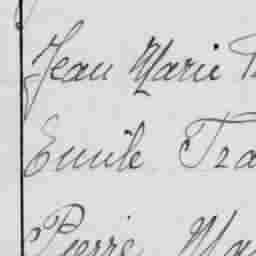 Jean Marie
Emile Tra
Pierre Ma